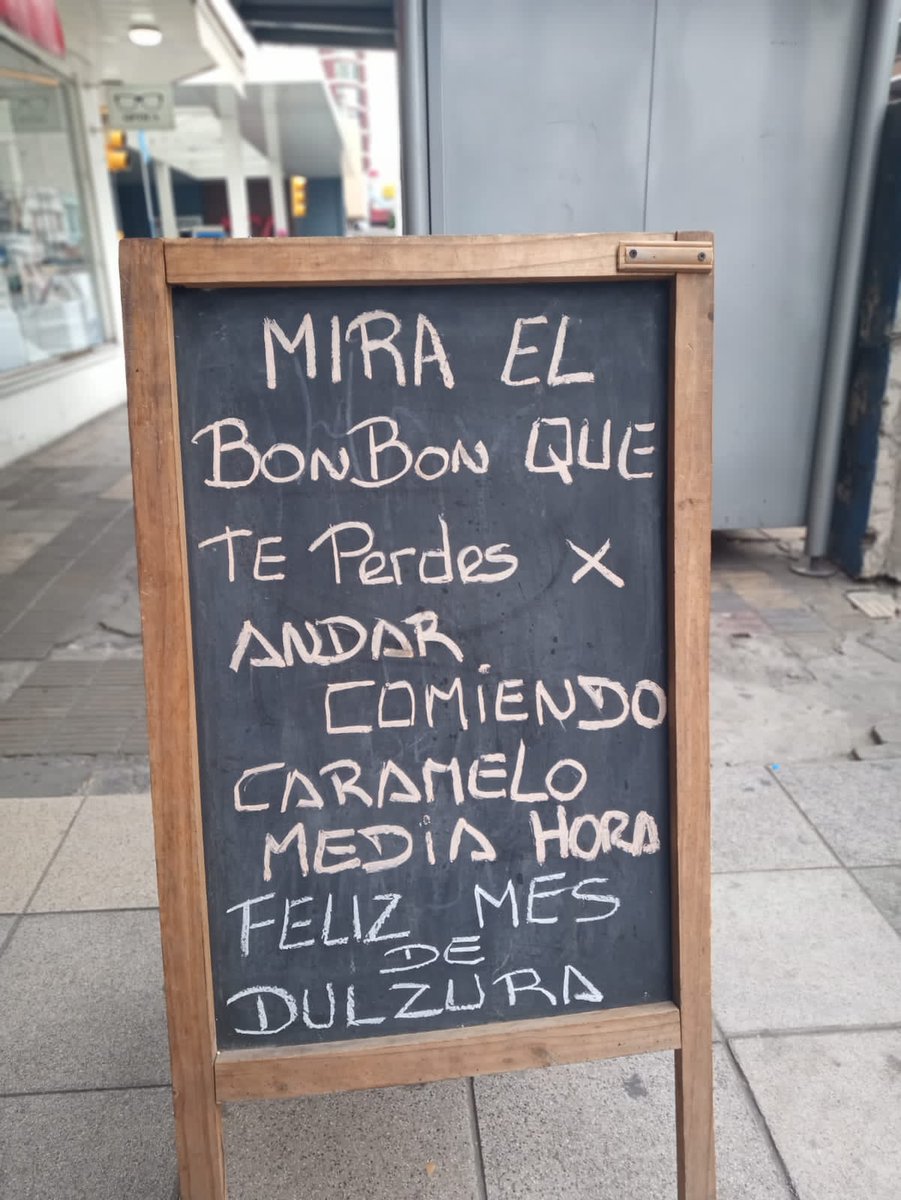 MIRA EL
BONBON QUE
TE Perdes X
ANDAR
COMIENDO
CARAMELO
MEDIA HORA
FELIZ MES
DE
DULZURA